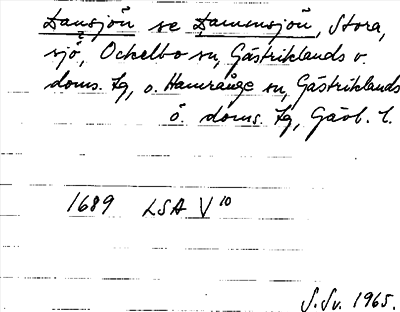 Dansjön se Dammsjön, Stora,
sjö, Ockelbo sn, Gästriklands v.
doms. Lg, o. Hamrånge sn, Gästriklands
ö. doms. Lg, Gävb. l.
1689 LSA V 10
S. Sv. 1965.